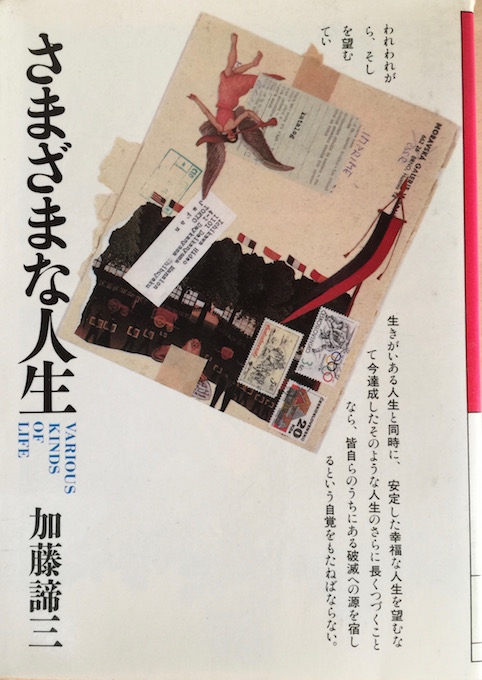 さまざまな人生
VARIOUS
KINDS
OF
LIFE
加藤諦三
われわれが生きがいある人生と同時に、安定した幸福な人生を望むな
ら、そして今達成したそのような人生のさらに長くつづくこと
を望むなら、皆自らのうちにある破滅への源を宿し
ているという自覚をもたねばならない。
katalog
Ichikawa Hideo
TOKYO
Japan
20